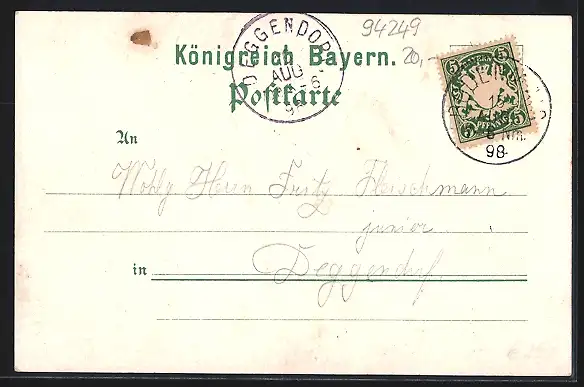 94249
20,-
Königreich Bayern.
Postkarte
DEGGENDORF
AUG
6
98
5 BAYERN 5
5 PFENNIG 5
15
8 Nm.
98
An
Wohlg Herrn Fritz Fleischmann
junior
in Deggendorf